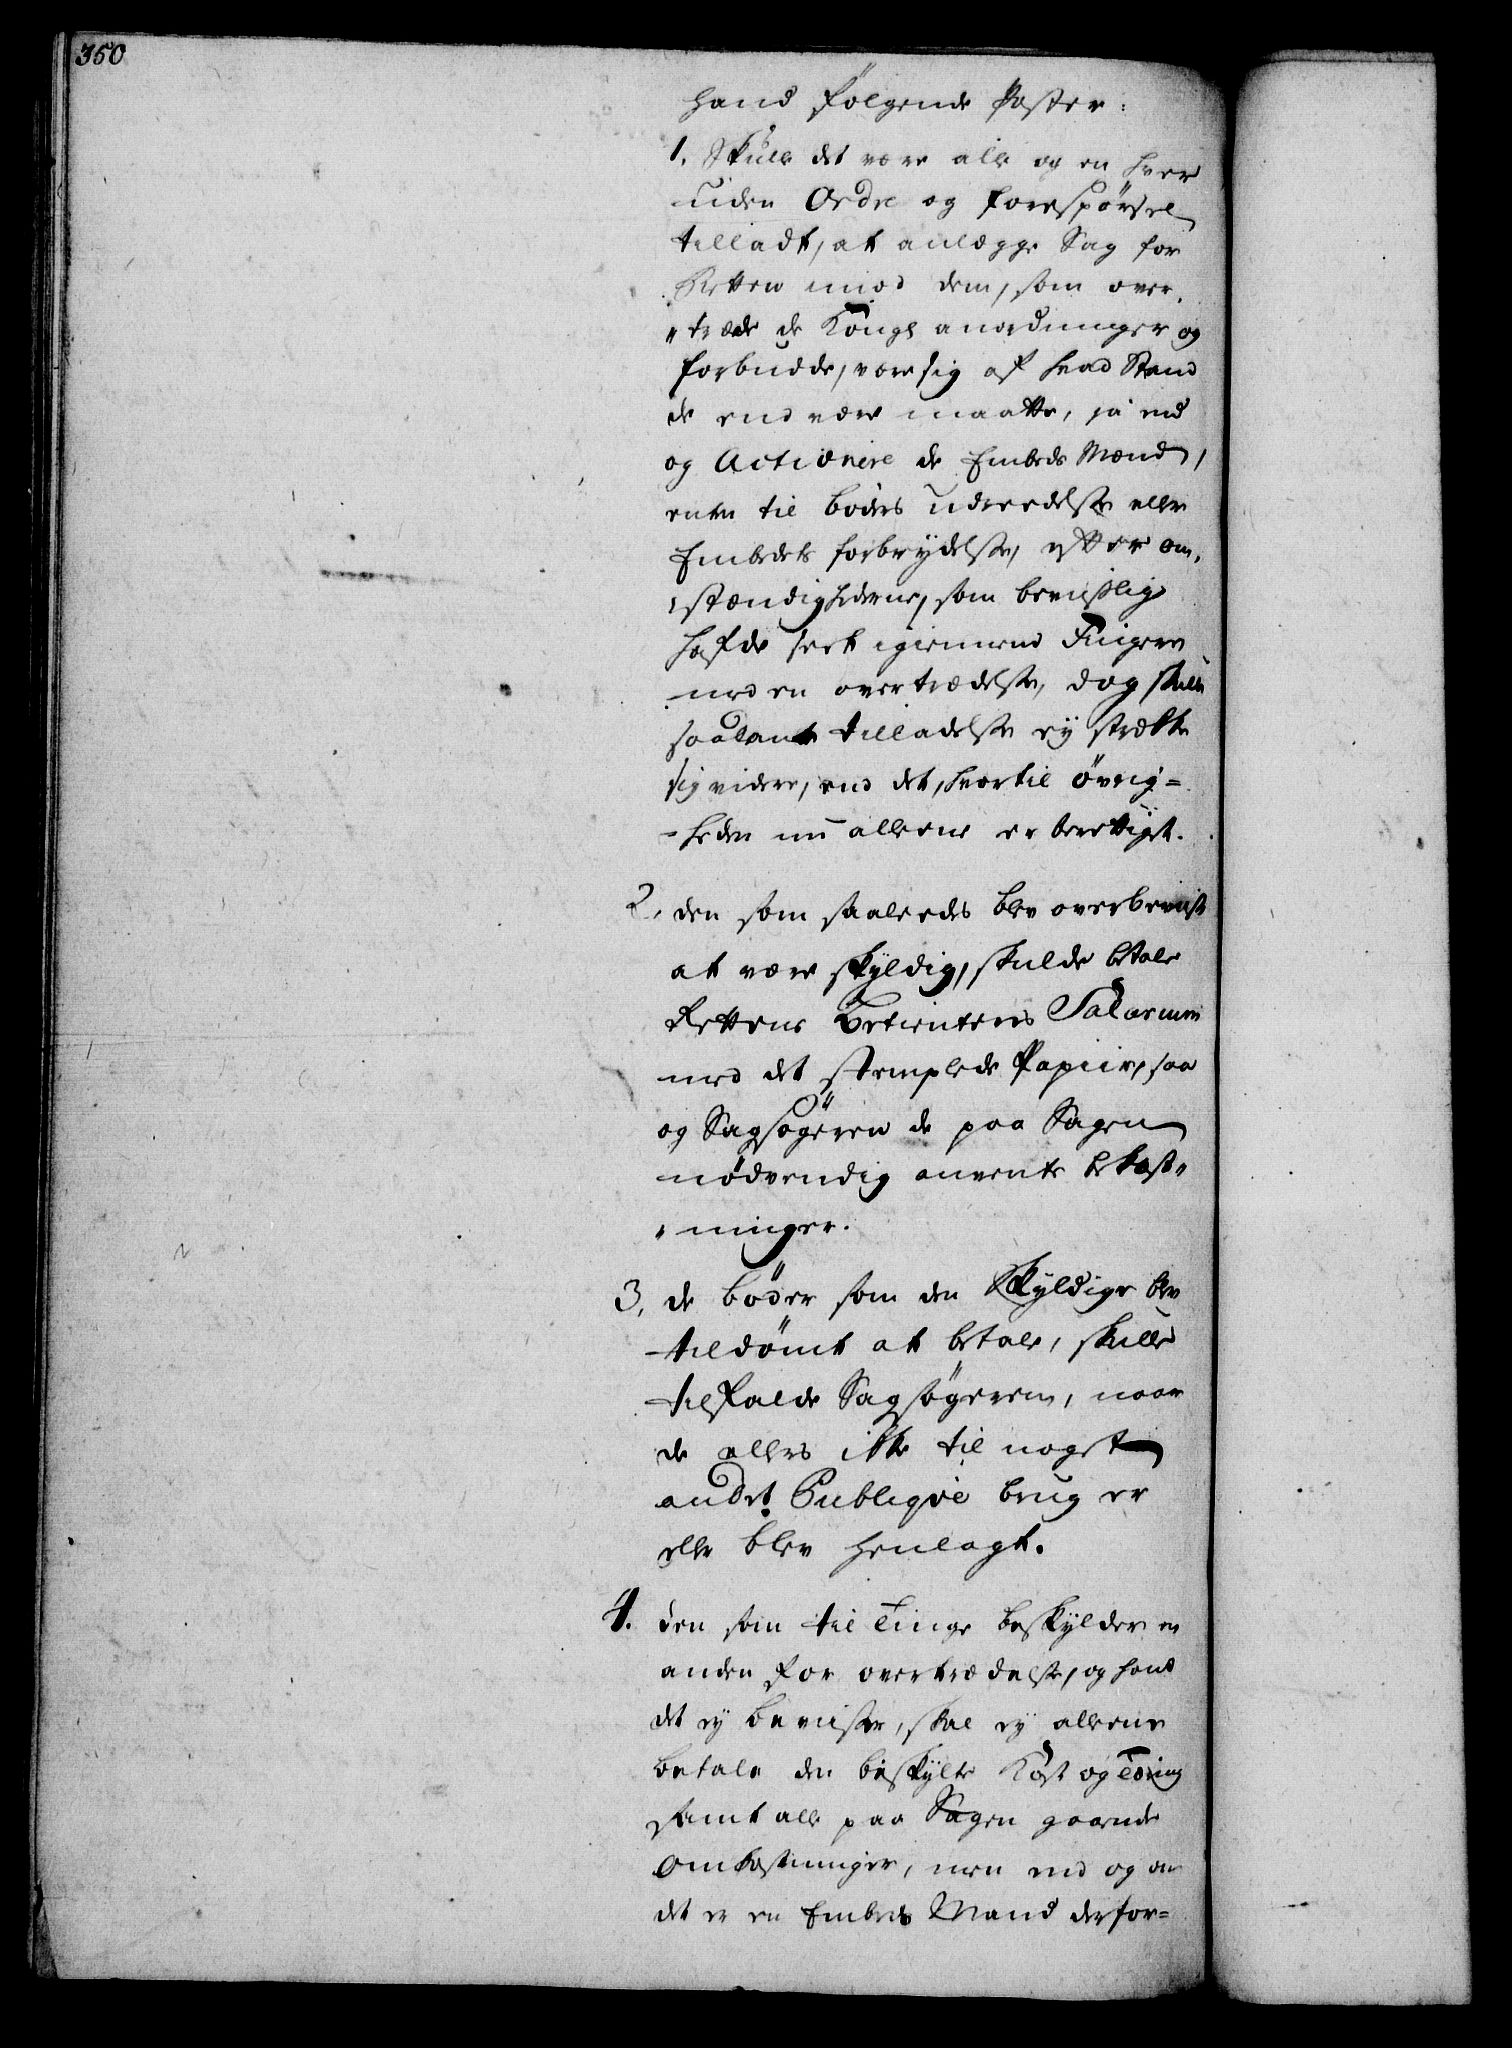 350
hand følgende Poster:
1. Skulle det være alle og en hver
uden Ordre og forespörsel
tilladt, at anlægge Sag for
Retten imod dem, som over,
"træde de Kongl anordninger og
forbudde, være sig af hvad Stand
de end være maatte, ja end
og Actionere de Embeds Mænd,
enten til böders udreedelse eller
Embedets forbrydelse, efter om,
"stændighederne, som beviislig
hafde seet igiennem Fingere
med en overtrædelse, dog skulle
saadant tilladelse ey strække
sig videre, end det, hvortil övrig=
=heden nu alleene er berettiget.
2, den som saaleedes blev overbeviist
at være skyldig, skulde betale
Rettens Betienteres Salarium
med det stemplede Papiir, saa
og Sagsögeren de paa Sagen
nödvendig anvente bekost"
"ninger.
3, de böder som den Skyldige blev
tildömt at betale, skulle
tilfalde Sagsögeren, naar
de ellers ikke til noget
andet Publiqve brug er
eller blev henlagt.
4. den som til Tinge beskylder en
anden for overtrædelse, og hand
det ey beviiser, skal ey alleene
betale den beskylte Kost og Tæring
samt alle paa Sagen gaaende
Omkostninger, men end og om
det er en Embeds Mand derfor=